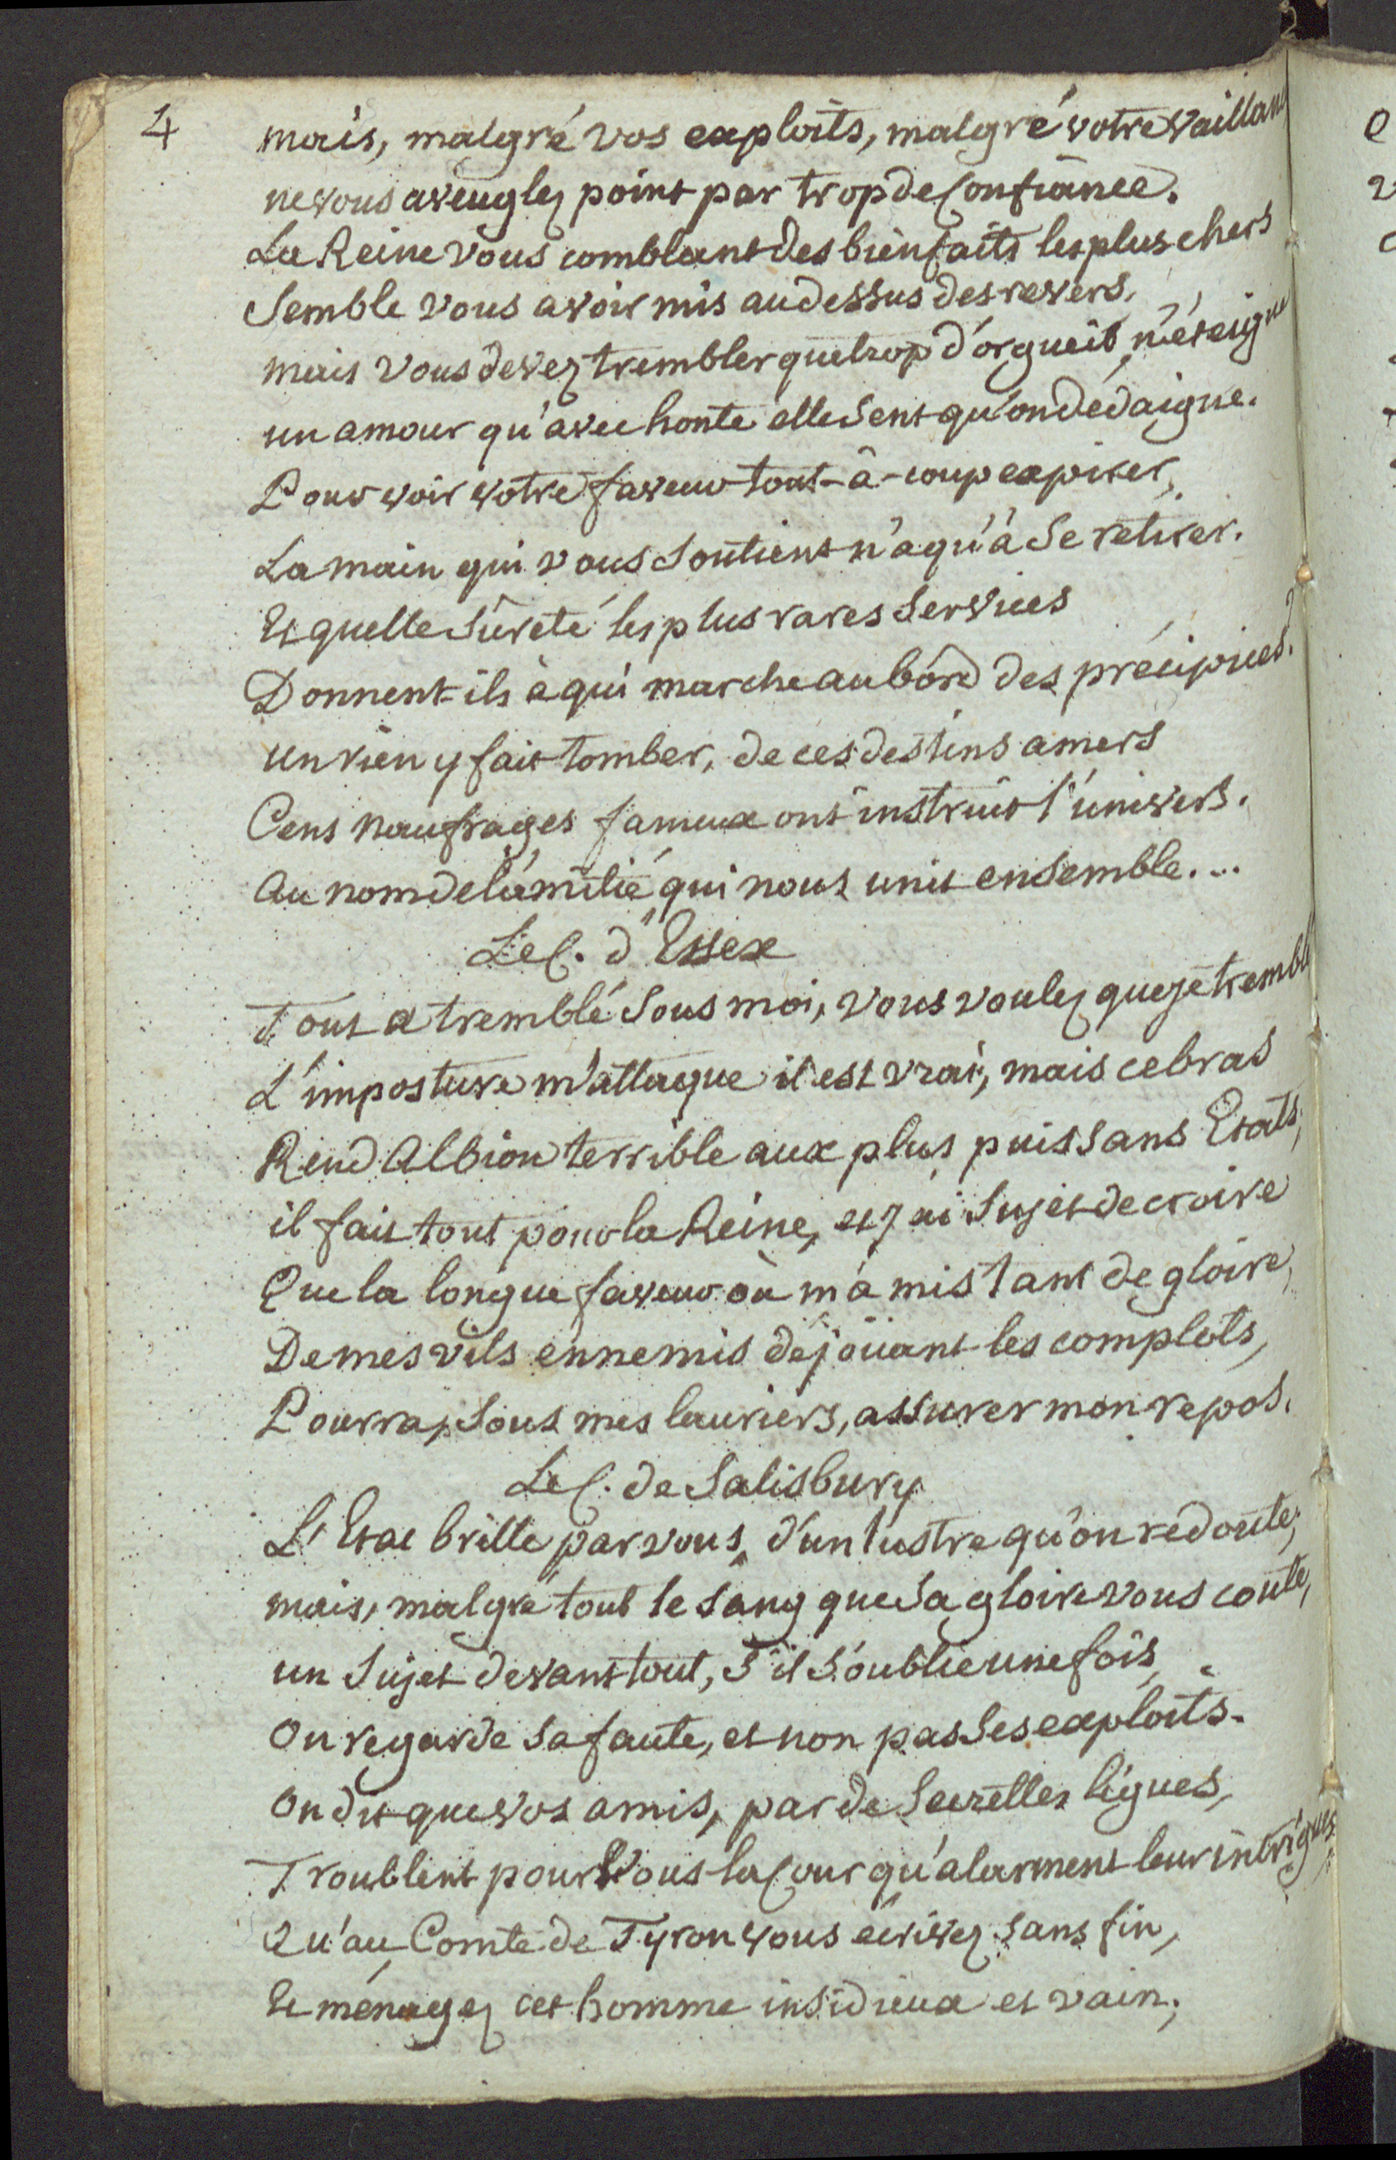 4
mais, malgré vos exploits, malgré votre vaillanc
ne vous aveuglez point par trop de Confiance.
La Reine vous comblant des bienfaits les plus chers
Semble vous avoir mis au dessus des revers,
mais vous devez trembler que trop d'orgueil n'éteigne
un amour qu'avec honte elle Sent qu'on dédaigne.
Pour voir votre faveur tout-à-coup expirer,
La main qui vous Soutient n'a qu'à Se retirer.
Et quelle Sûreté les plus rares Services
Donnent-ils à qui marche au bord des précipices?
un rien y fait tomber, de ces destins amers
Cent Naufrages fameux ont instruit l'univers.
Au nom de l'amitié qui nous unit ensemble....
Le C. d'Essex
Tout a tremblé Sous moi, vous voulez que je trembl
L'imposture m'attaque il est vrai, mais ce bras
Rend Albion terrible aux plus puissans Etats,
il fait tout pour la Reine, et j'ai Sujet de croire
Que la longue faveur où m'a mis tant de gloire,
De mes vils ennemis déjoüant les complots,
Pourra, Sous mes lauriers, assurer mon repos.
Le C. de Salisbury
L'Etat brille par vous d'un lustre qu'on redoute;
mais, malgré tout le Sang que Sa gloire vous coute,
un Sujet devant tout, S'il S'oublie une fois,
On regarde Sa faute, et non pas Ses exploits.
On dit que vos amis, par de Secrettes ligues,
Troublent pour Vous la Cour qu'alarment leur intrigues,
Qu'au Comte de Tyron vous écrivez Sans fin,
Et ménagez cet homme insidieux et vain,